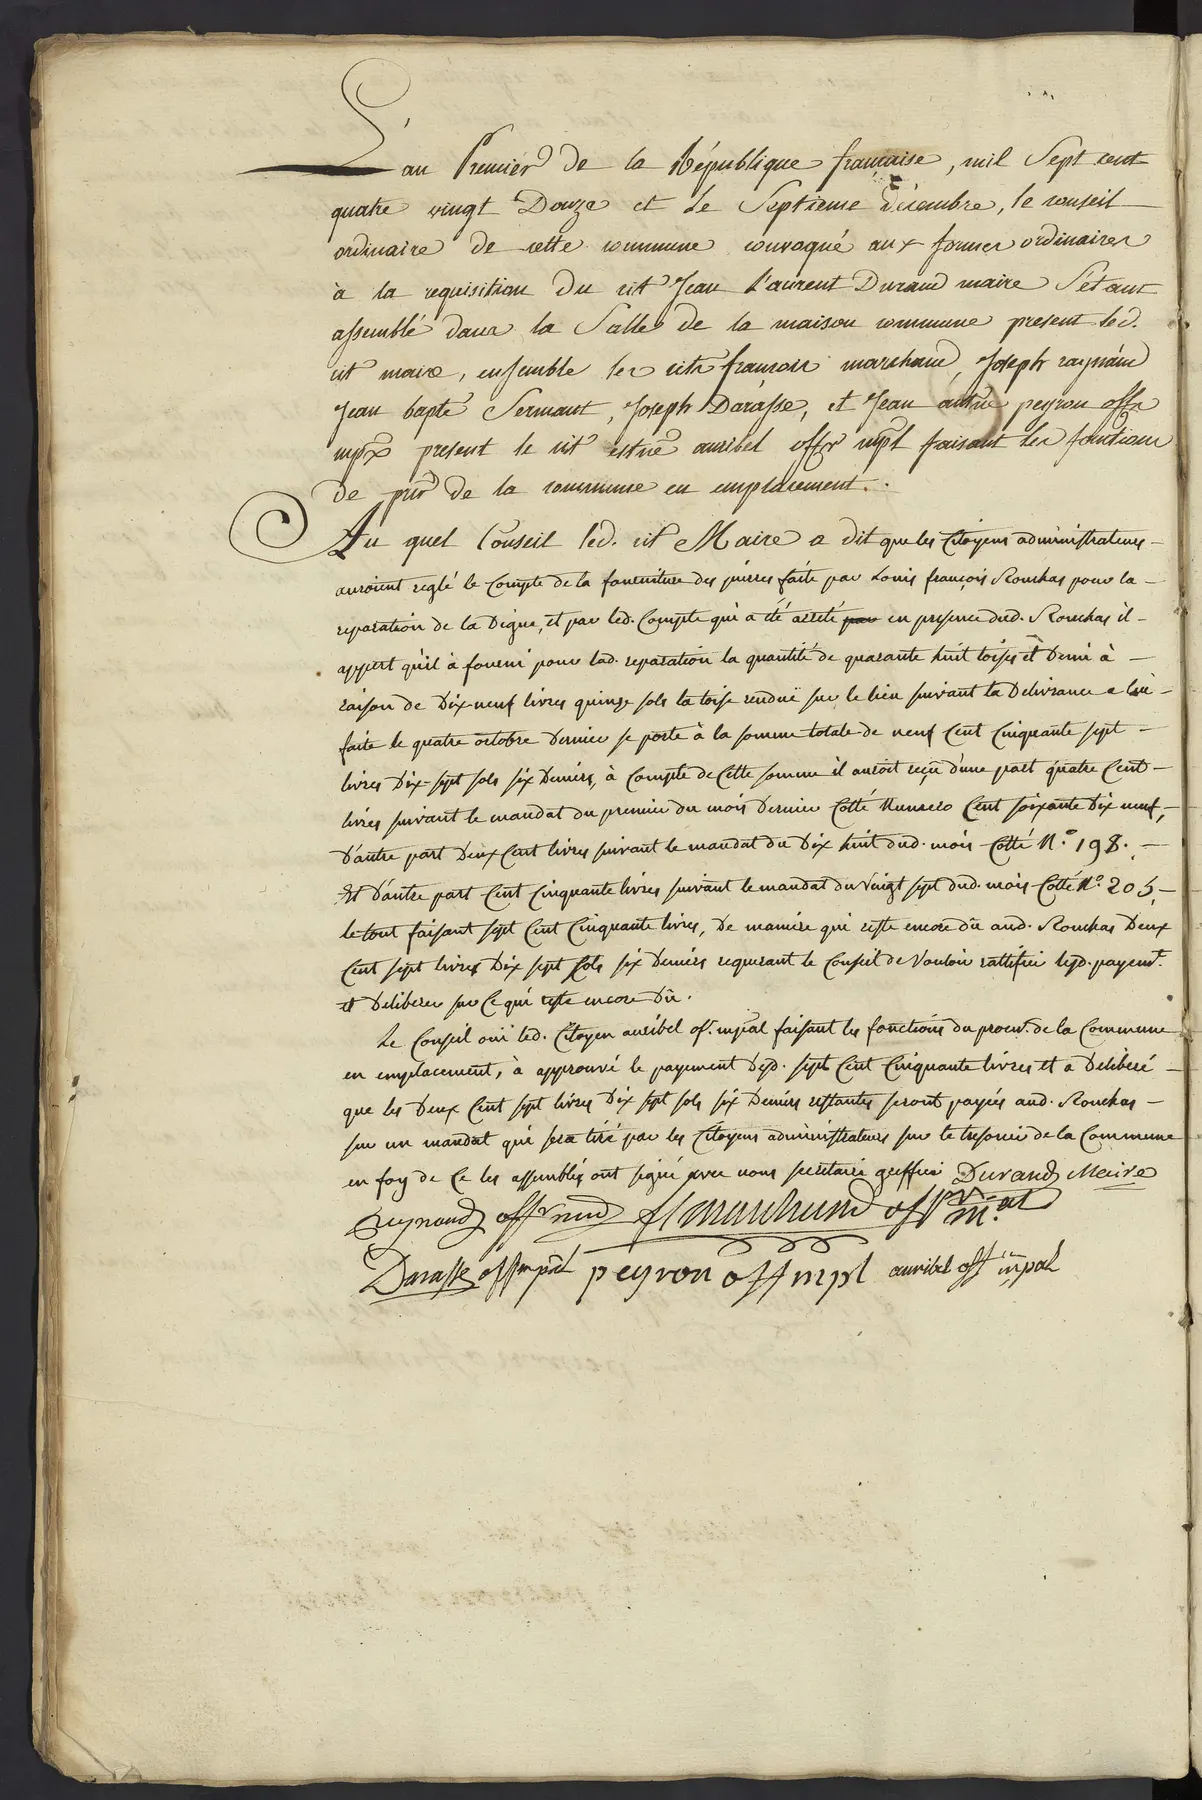 L'an Premier de la République française, mil Sept cent
quatre vingt Douze et Le Septieme décembre, le conseil
ordinaire de cette commune convoqué aux formes ordinaires
à la requisition du cit Jean Laurent Durand maire S'étant
assemblé dans la Salle de la maison commune present led.
cit maire, ensemble les cits françois marchand, Joseph raynaud
Jean bapte Sermant, Joseph Darasse, et Jean antne peyron offrs
mpx present le cit estne auribel offr mpl faisant les fonctions
de pnr de la commune en emplacement.
Au quel Conseil led. cit Maire a dit que les Citoyens administrateurs
auroient reglé le Compte de la fourniture des pierres faite par Louis françois Rouchas pour la
reparation de la Digue, et par led. Compte qui a été arrêté par en presence dud. Rouchas il
appert qu'il à fourni pour lad. reparation la quantité de quarante huit toises et Demi à
raison de Dix-neuf livres quinze sols la toise renduë sur le lieu suivant la Delivrance a lui
faite le quatre octobre Dernier se porte à la somme totale de neuf Cent Cinquante sept
livres Dix-sept sols six Deniers, à Compte de Cette somme il auroit reçu d'une part quatre Cent
livres suivant le mandat du premier du mois Dernier Cotté Numero Cent soixante Dix neuf,
D'autre part Deux Cent livres suivant le mandat du Dix huit dud. mois Cotté N.° 198.
Et D'autre part Cent Cinquante livres suivant le mandat du Vingt sept dud. mois Cotté N.° 205,
le tout faisant sept Cent Cinquante livres, De maniére qui reste encore dû aud. Rouchas Deux
Cent sept livres Dix sept sols six Deniers requerant le Conseil de Vouloir rattifier lesd. payemt.
et Deliberer sur Ce qui reste encore Dû.
Le Conseil oui led. Citoyen auribel of. mpal faisant les fonctions du procur. de la Commune
en emplacement, à approuvé le payement Desd. sept Cent Cinquante livres et a Deliberé
que les Deux Cent sept livres Dix sept sols six Deniers restantes seront payées aud. Rouchas
sur un mandat qui sera tiré par les Citoyens administrateurs sur le tresorier de la Commune
en foy de Ce les assemblés ont signé avec nous secretaire greffier Durand Maire
Reynaud offr mud fs marchand offr m.al
Darasse off mpal peyron off mpl auribel off mpal